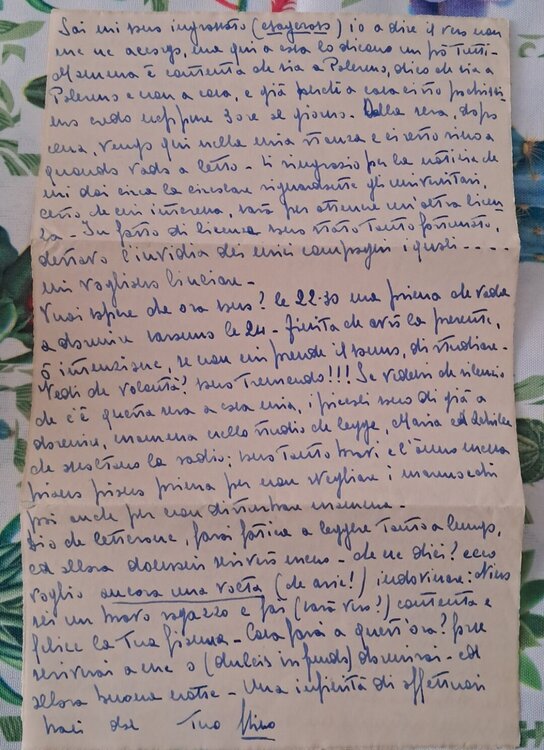 Sai mi sono ingrassato (esagerono) io a dire il vero non
me ne accorgo, ma qui a casa lo dicono un pò tutti-
Mamma è contenta che sia a Palermo, dico che sia a
Palermo e non a casa, e già perché a casa ci sto pochissi
mo credo neppure 3 ore al giorno. Della sera, dopo
cena, vengo qui nella mia stanza e ci resto sino a
quando vado a letto - Ti ringrazio per la notizia che
mi dai circa la circolare riguardante gli universitari,
certo che mi interessa, sarà per ottenere un'altra licen
za - In fatto di licenza sono stato tanto fortunato,
destavo l'invidia dei miei compagni i quali - - - - -
mi vogliono linciare -
Vuoi sapere che ora sono? le 22.30 ma prima che vada
a dormire saranno le 24 - finita che avrò la presente,
ò intenzione, se non mi prende il sonno, di studiare -
Vedi che volontà? sono tremendo!!! Se vedessi che silenzio
che c'è questa sera a casa mia, i piccoli sono di già a
dormire, mamma nello studio che legge, Maria ed
che ascoltano la radio; sono tanto bravi e l'ànno messa
piano piano prima per non svegliare i marmocchi
poi anche per non disturbare mamma -
Dio che letterone, farai fatica a leggere tanto a lungo,
ed allora domani scriverò meno - che ne dici? ecco
voglio ancora una volta (che arie!) indovinare: Nino
sei un bravo ragazzo e fai (sarà vero?) contenta e
felice la Tua - Cosa farai a quest'ora? forse
scriverai a me o (dulcis in fundo) dormirai - ed
allora buona notte - Una infinità di affettuosi
baci dal Tuo Nino